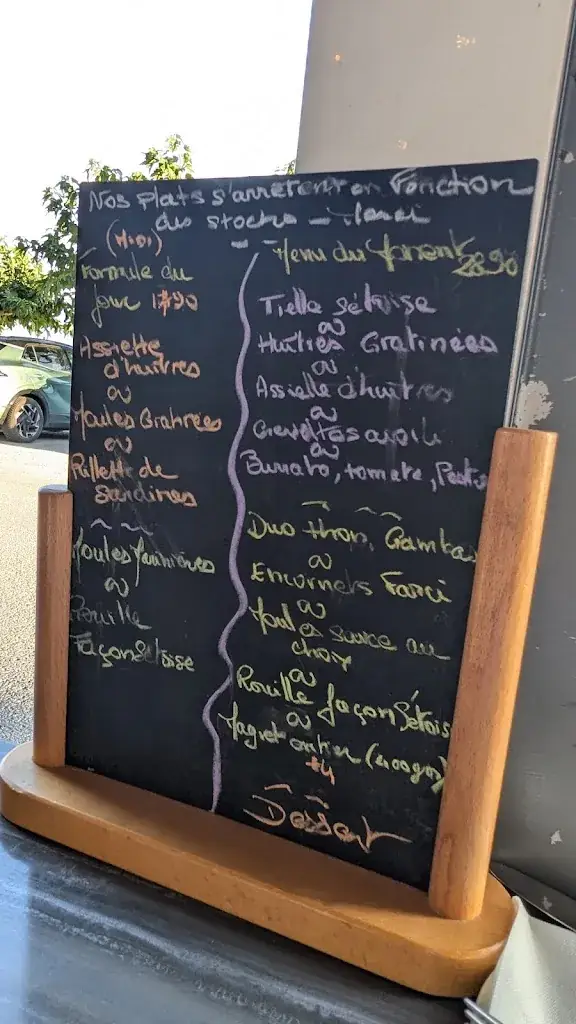 Nos plats s'arrêtent en Fonction
des stocks - Merci
(Midi)
Formule du
jour 17,90
Assiette
d'huîtres
ou
Moules Gratinées
ou
Rillette de
Sardines
Moules Marinières
ou
Rouille
Façon Sétoise
Menu du moment 28.90
Tielle Sétoise
ou
Huîtres Gratinées
ou
Assiette d'huîtres
ou
Crevettes aïoli
ou
Burrata, tomate, Pesto
Duo thon, Gambas
ou
Encornets Farci
ou
Moules sauce au
choix
ou
Rouille façon Sétoise
ou
Magret entier
+4
Dessert